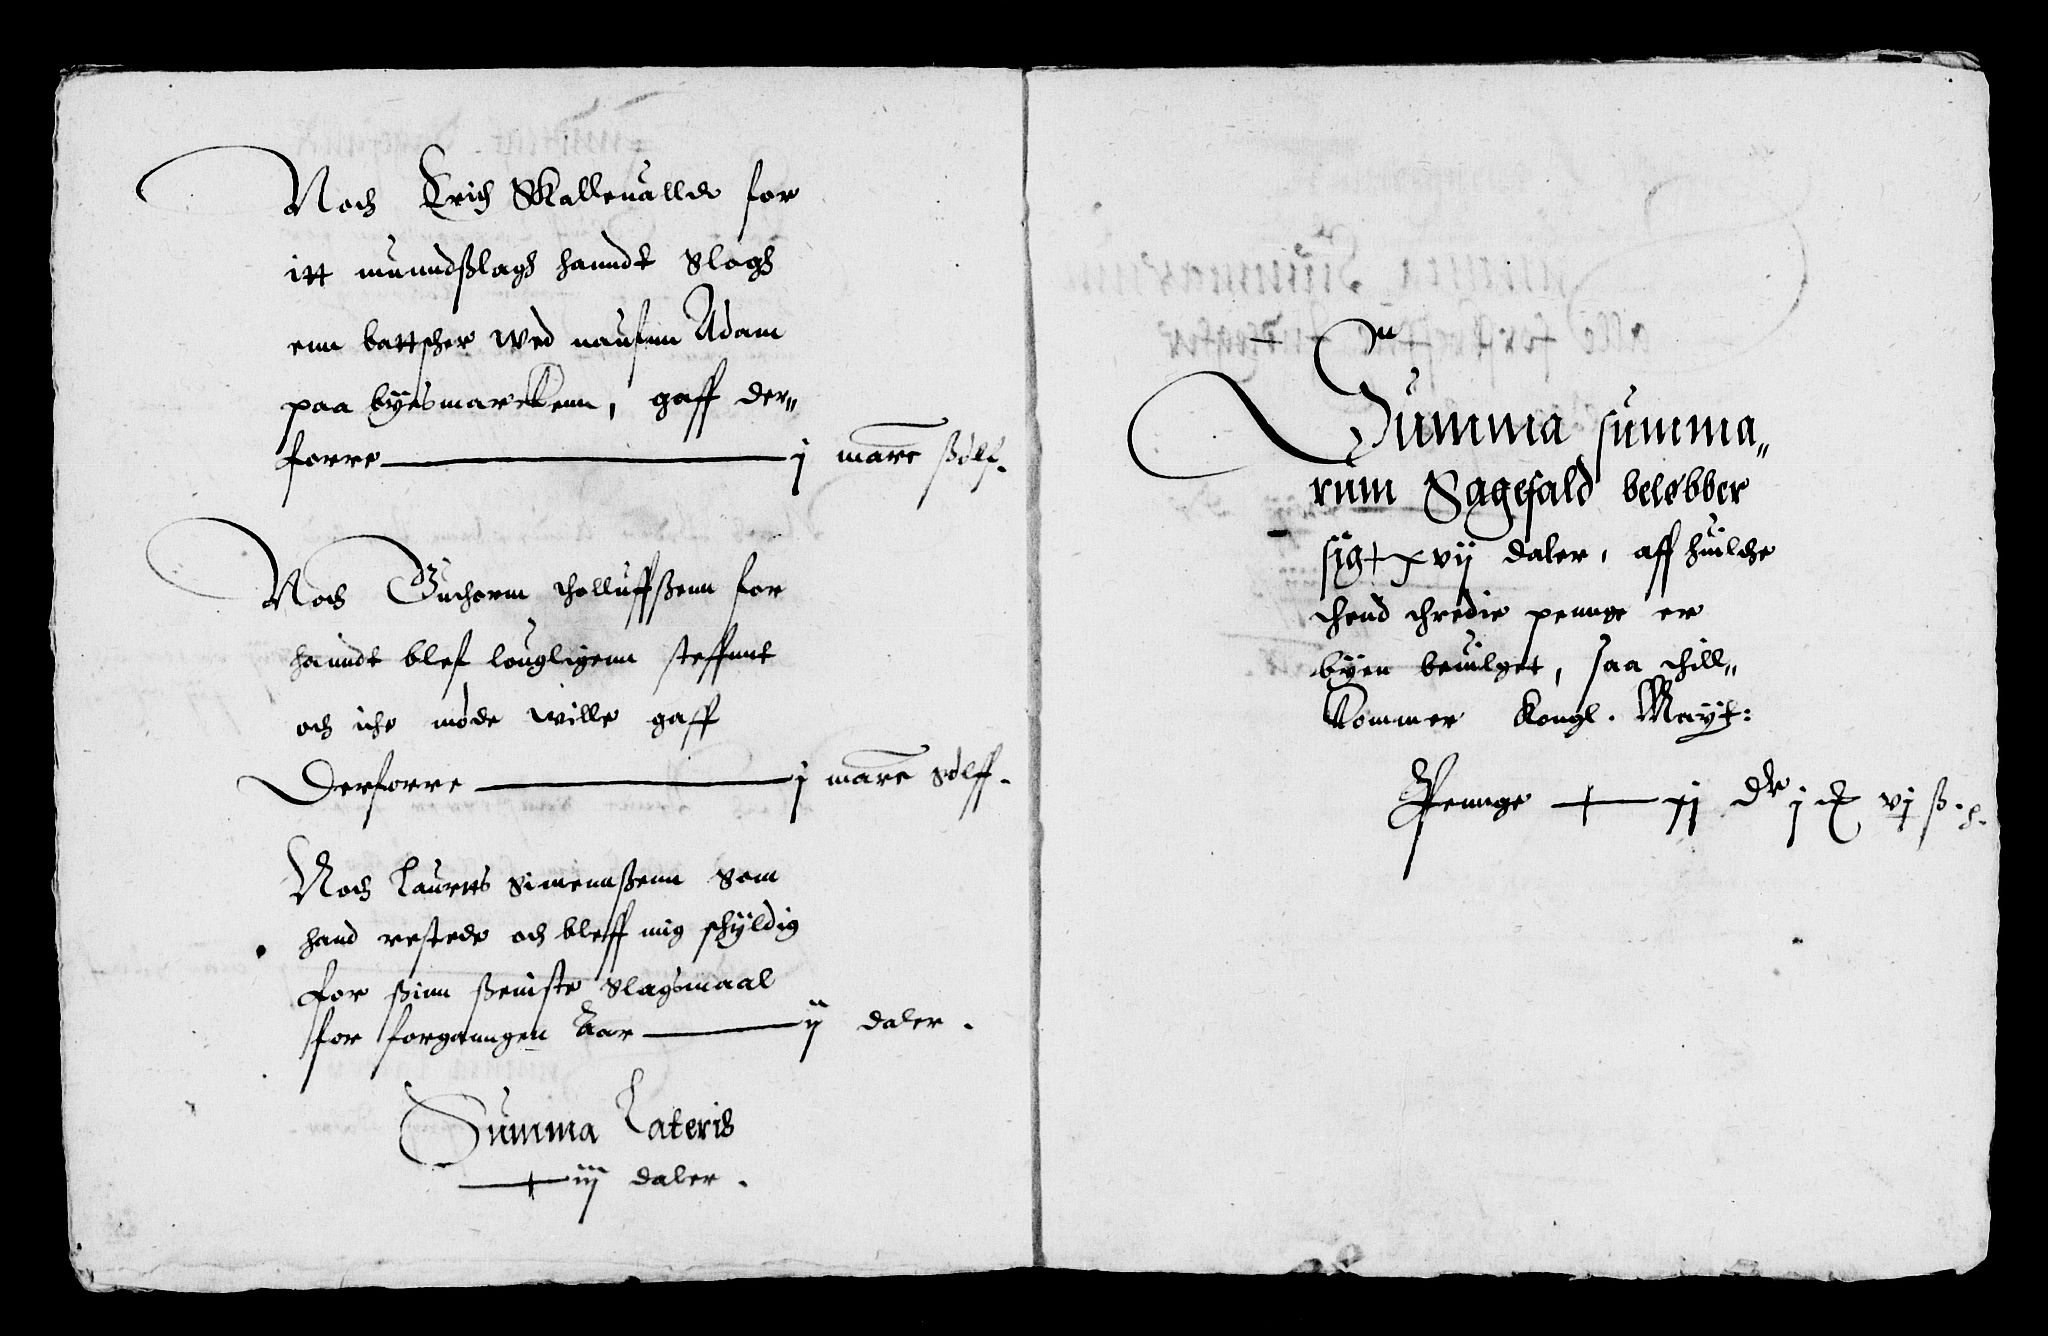 Noch Erich Skalleuallde for
itt munndßlagh hanndt Slogh
enn battscher wed naufnn Adam
paa byesmarckenn, gaff der„
forre — j marc ßølf.
Noch Guthorm tholluffßenn for
hanndt blef lougligenn steffnnt
och iche møde wille gaff
Derforre — j marc Sølff.
Noch Lauritts Simennßenn Som
hand restede och bleff mig schyldig
for ßinn ßeniste Slagsmaal
for forganngen Aar — ij daler.
Summa Lateris
— iij daler.
Summa summa„
rum Sagefald beløbber
sig xvij daler, aff huilche
thend thredie pennge er
byen beuilget, saa thill„
kommer Kongl. Mayt:
Pennge — xj dr j ort vj ß.